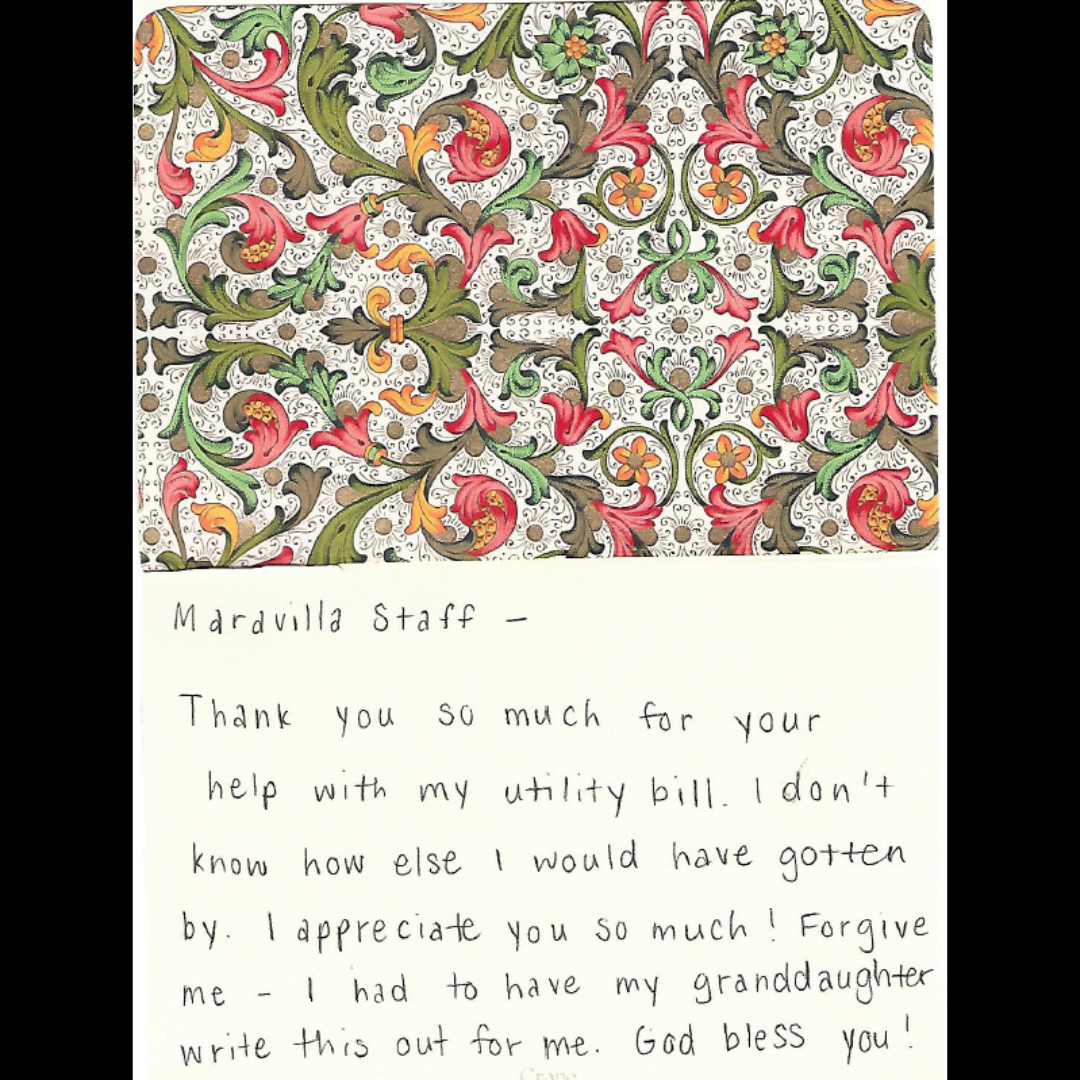 Maravilla Staff –
Thank you so much for your
help with my utility bill. I don't
know how else I would have gotten
by. I appreciate you so much! Forgive
me – I had to have my granddaughter
write this out for me. God bless you!
Crane